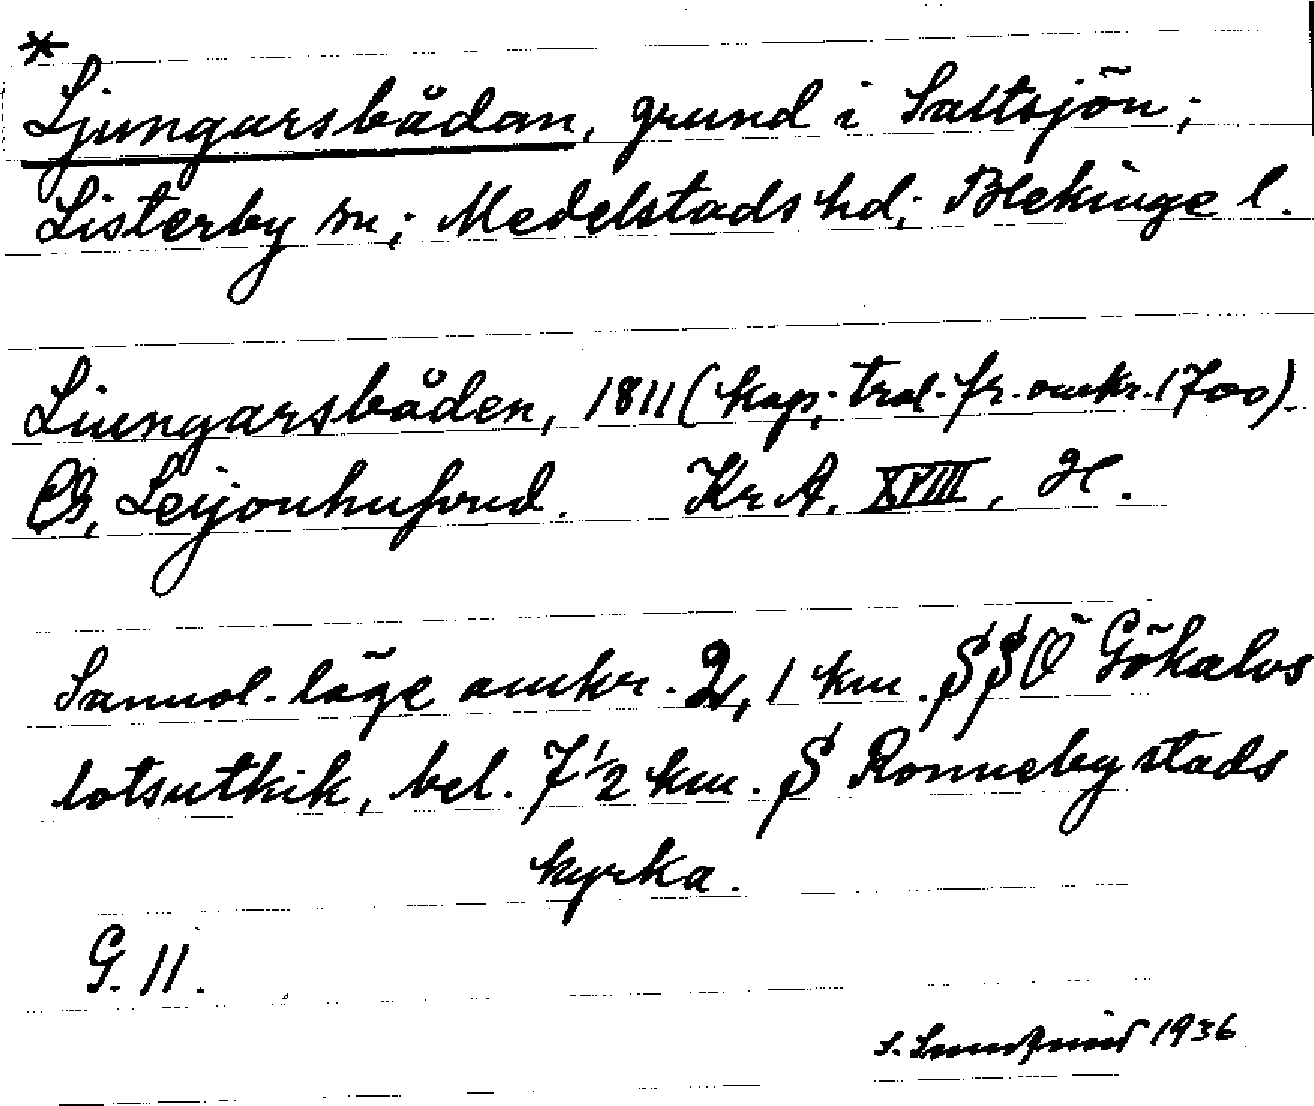 *
Ljungarsbådan, grund i Saltsjön;
Listerby sn; Medelstads hd; Blekinge l.
Liungarsbåden, 1811 (kop; trol. fr. omkr. 1700)
CG, Leijonhufvud. Kr A. XVIII, H.
Sannol. läge omkr. 2,1 km. SSÖ Gökalvs
lotsutkik, bel. 7 1/2 km. S Ronneby stads
kyrka.
G. 11.
S. 1936